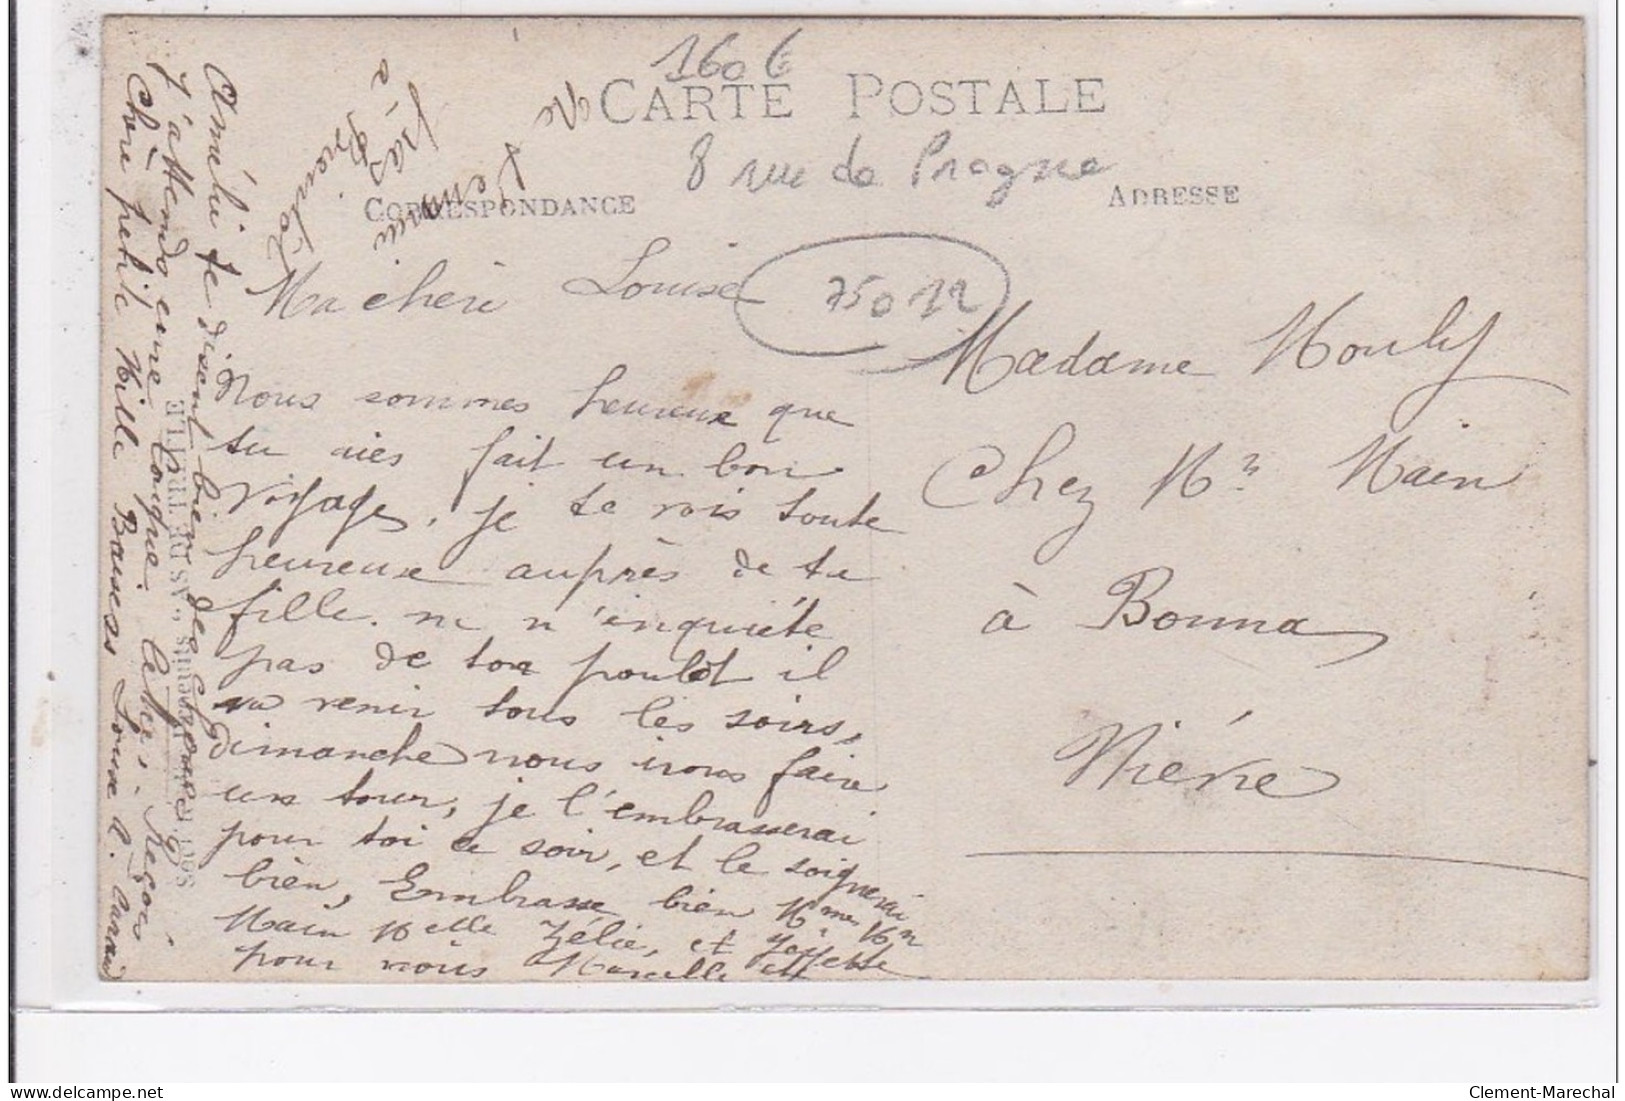 160 €
CARTE POSTALE
8 rue de Prague
CORRESPONDANCE
ADRESSE
75012
Ma chère Louise
Nous sommes heureux que
tu aies fait un bon
voyage, je te vois toute
heureuse auprès de ta
fille. ne n'inquiéte
pas de ton poulot il
va venir tous les soirs,
dimanche nous irons faire
un tour, je l'embrasserai
pour toi ce soir, et le soignerai
bien, Embrasse bien Mme Mr
Main Melle Zélie, et Yossette
pour nous Marcelle et
Madame Mouly
Chez Mr Main
à Bonna
Nièvre
Chère petite Mille Baisers Louise
J'attends une longue lettre. Reçoi
Amélie te disent bien des choses